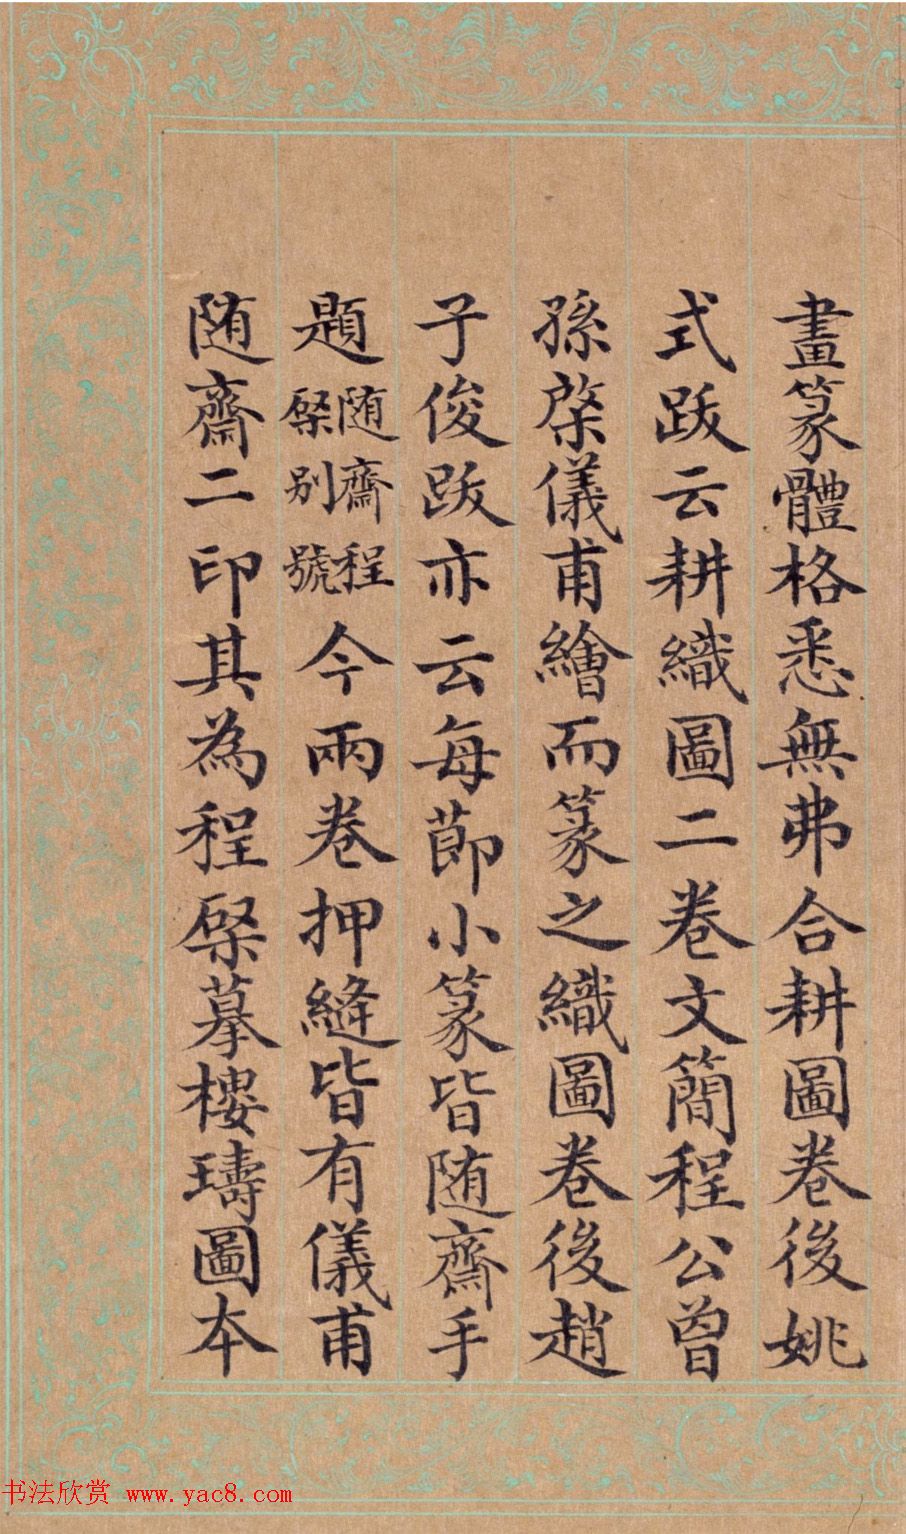 畫篆體格悉無弗合耕圖卷後姚
式跋云耕織圖二卷文簡程公曾
孫棨儀甫繪而篆之織圖卷後趙
子俊跋亦云每莭小篆皆随齋手
題随齋程棨别號今兩卷押縫皆有儀甫
随齋二印其為程棨摹樓璹圖本
书法欣赏 www.yac8.com